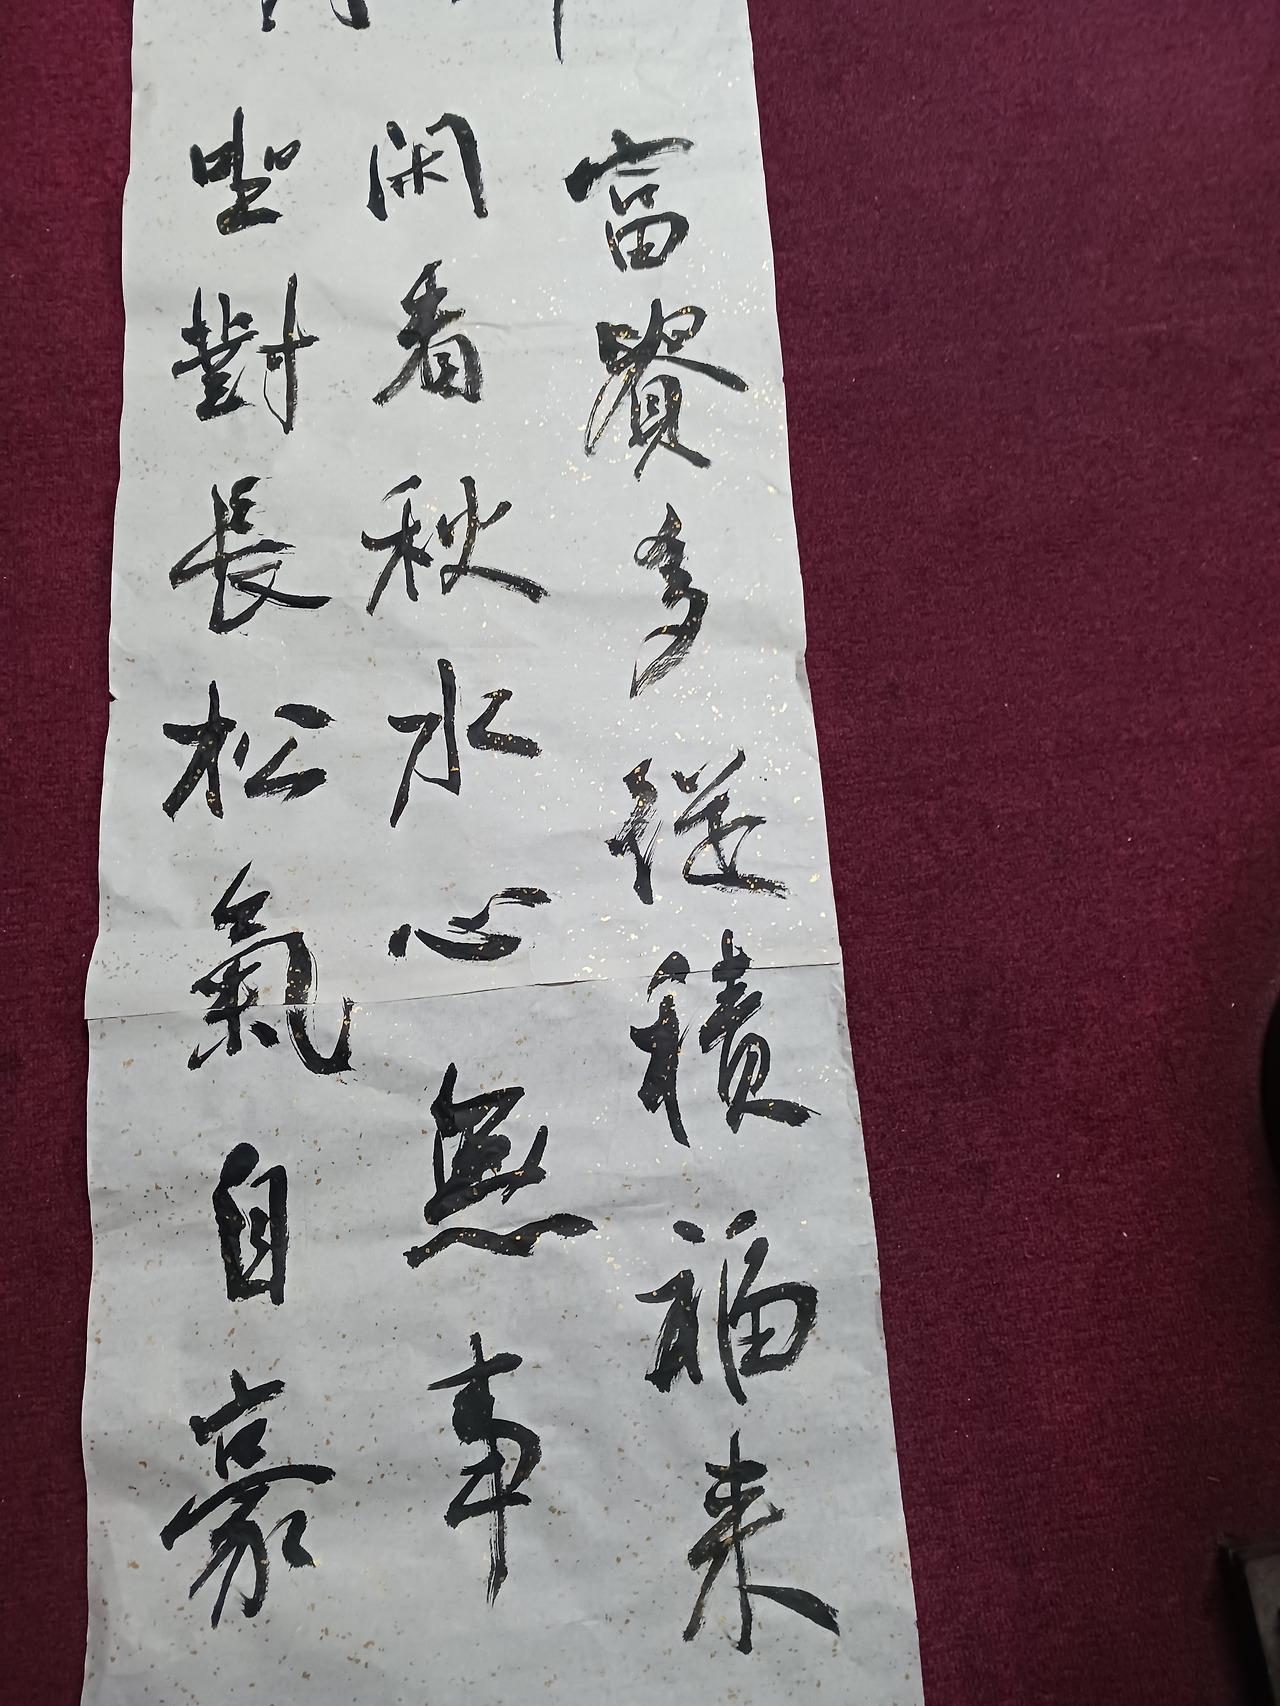 富貴多從積福來
閑看秋水心無事
坐對長松氣自豪